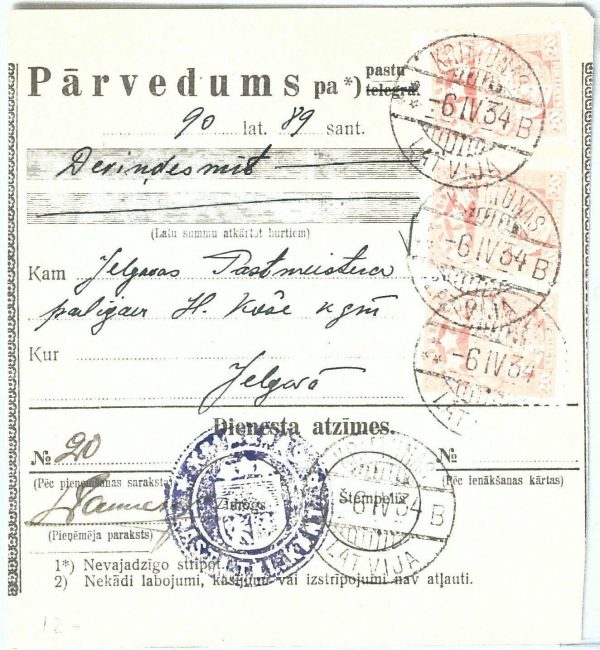 Pārvedums pa *) pastu
telegrā
90 lat. 89 sant.
Deviņdesmit
(Latu summu atkārtot burtiem)
Kam Jelgavas Pastmeistera
palīgam H. kgm
Kur
Jelgavā
Dienesta atzīmes.
№ 20 №
(Pēc pieņemšanas saraksta) (Pēc ienākšanas kārtas)
Zīmogs Stempelis
(Pieņēmēja paraksts)
1*) Nevajadzīgo strīpot.
2) Nekādi labojumi, kasījumi vai izstrīpojumi nav atļauti.
-6 IV 34 B
LATVIJA
-6 IV 34 B
-6 IV 34
-6 IV 34 B
LATVIJA
12-